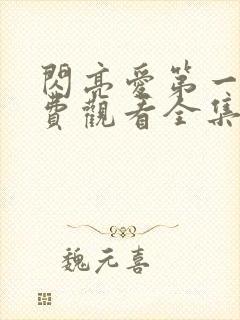 閃亮愛第一
費觀看全集
魏元喜